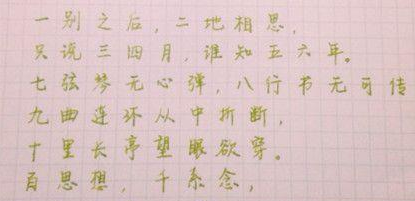 一别之后，二地相思，
只说三四月，谁知五六年。
七弦琴无心弹，八行书无可传
九曲连环从中折断，
十里长亭望眼欲穿。
百思想，千系念，